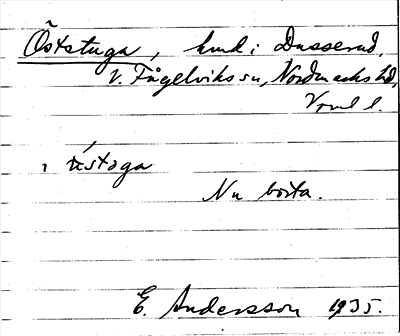 Öststuga, hmd i Dusserud,
V. Fågelviks sn, Nordmarks hd,
Vrml l.
ı ústoga
Nu borta.
E. Andersson 1935.